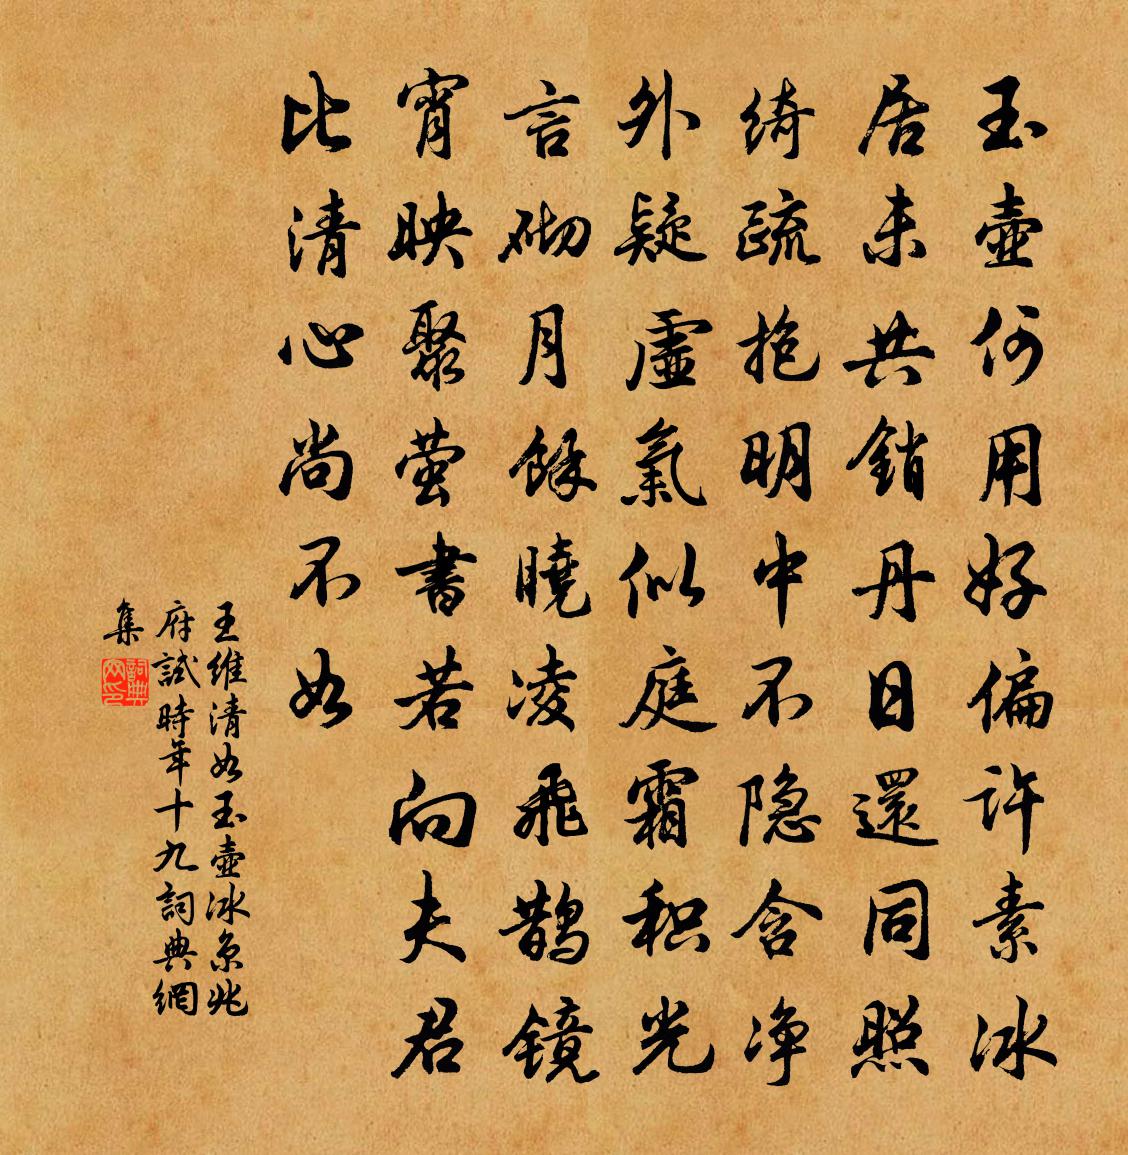 玉壺何用好偏許素冰
居未共銷丹日還同照
綺疏抱明中不隐含净
外疑虛氣似庭霜积光
言砌月餘曉凌飛鵲镜
宵映聚萤書若向夫君
比清心尚不如
王維清如玉壺冰京兆
府試時年十九詞典網
集
詞典
网印